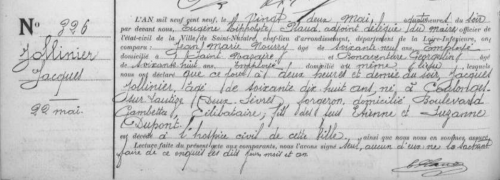 No 226
Jollinier
Jacques
22 mai.
L'AN mil neuf cent neuf, le vingt deux mai, à quatre heures du soir
par devant nous, Eugène Hippolyte adjoint délégué du maire officier de
l'état-civil de la Ville de Saint-Nazaire, chef-lieu d'arrondissement, département de la Loire-Inférieure, ont
comparu : Jean Marie Moury âgé de soixante neuf ans, Employé
domicilié à Saint Nazaire et Donancienne
de soixante huit ans, domicilié au même lieu
nous ont déclaré que ce jour à deux heures et demie du soir, Jacques
Jollinier, âgé de soixante dix huit ans, né à Coulonges
sur l'autize (Deux Sèvres) forgeron, domicilié Boulevard
Gambetta, Célibataire; fils de Etienne et Suzanne
Dupont.
est décédé à l'hospice civil de cette Ville, ainsi que nous nous en sommes assuré
Lecture faite du présent acte aux comparants, nous l'avons signé seul, aucun d'eux ne le sachant
faire de ce enquis les dits jour mois et an